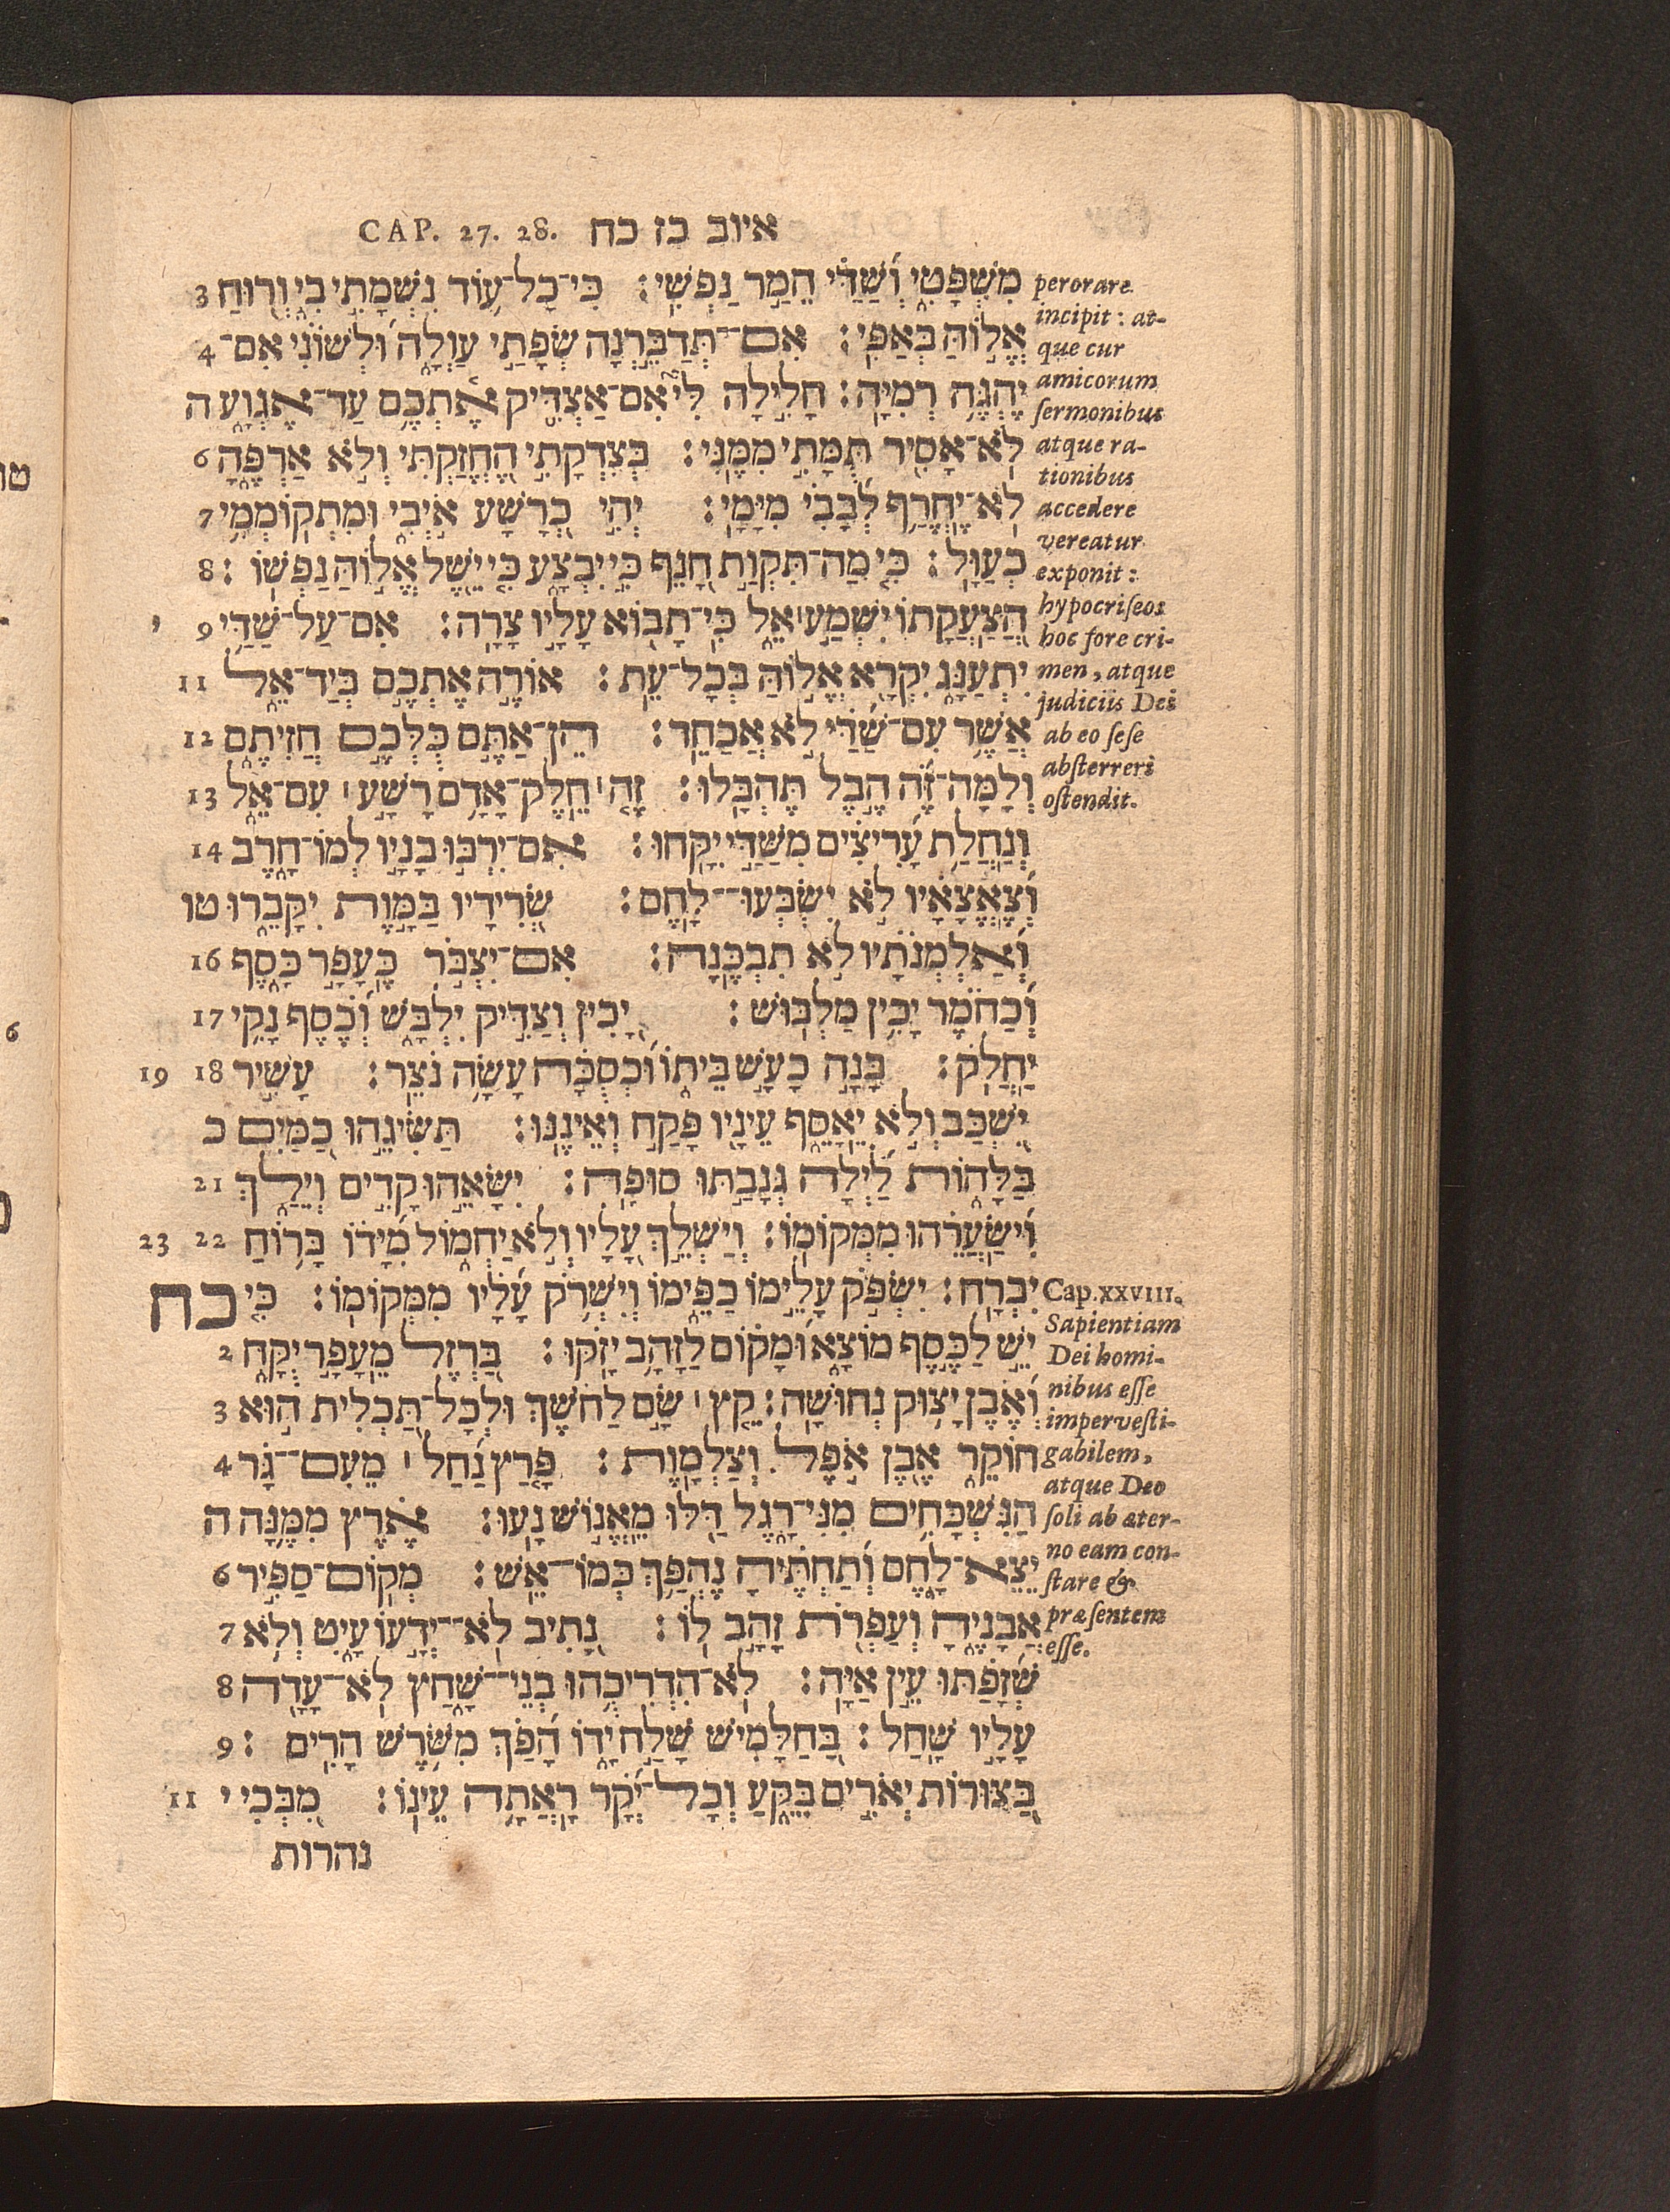 איוב כז כח CAP. 27. 28.
מִשְׁפָּטִי וְשַׁדַּי הֵמַר נַפְשִׁי׃ כִּי־כָל־עוֹד נִשְׁמָתִי בִי וְרוּחַ 3
אֱלוֹהַּ בְּאַפִּי׃ אִם־תְּדַבֵּרְנָה שְׂפָתַי עַוְלָה וּלְשׁוֹנִי אִם־ 4
יֶהְגֶּה רְמִיָּה׃ חָלִילָה לִּי אִם־אַצְדִּיק אֶתְכֶם עַד־אֶגְוָע ה
לֹא־אָסִיר תֻּמָּתִי מִמֶּנִּי׃ בְּצִדְקָתִי הֶחֱזַקְתִּי וְלֹא אַרְפֶּהָ 6
לֹא־יֶחֱרַף לְבָבִי מִיָּמָי׃ יְהִי כְרָשָׁע אֹיְבִי וּמִתְקוֹמְמִי 7
כְעַוָּל׃ כִּי מַה־תִּקְוַת חָנֵף כִּי יִבְצָע כִּי יֵשֶׁל אֱלוֹהַּ נַפְשׁוֹ׃ 8
הֲצַעֲקָתוֹ יִשְׁמַע אֵל כִּי־תָבוֹא עָלָיו צָרָה׃ אִם־עַל־שַׁדַּי 9 י
יִתְעַנָּג יִקְרָא אֱלוֹהַּ בְּכָל־עֵת׃ אוֹרֶה אֶתְכֶם בְּיַד־אֵל 11
אֲשֶׁר עִם־שַׁדַּי לֹא אֲכַחֵד׃ הֵן־אַתֶּם כֻּלְּכֶם חֲזִיתֶם 12
וְלָמָּה־זֶּה הֶבֶל תֶּהְבָּלוּ׃ זֶה חֵלֶק־אָדָם רָשָׁע עִם־אֵל 13
וְנַחֲלַת עָרִיצִים מִשַּׁדַּי יִקָּחוּ׃ אִם־יִרְבּוּ בָנָיו לְמוֹ־חָרֶב 14
וְצֶאֱצָאָיו לֹא יִשְׂבְּעוּ־לָחֶם׃ שְׂרִידָיו בַּמָּוֶת יִקָּבֵרוּ טו
וְאַלְמְנֹתָיו לֹא תִבְכֶּנָה׃ אִם־יִצְבֹּר כֶּעָפָר כָּסֶף 16
וְכַחֹמֶר יָכִין מַלְבּוּשׁ׃ יָכִין וְצַדִּיק יִלְבָּשׁ וְכֶסֶף נָקִי 17
יַחֲלֹק׃ בָּנָה כָעָשׁ בֵּיתוֹ וּכְסֻכָּה עָשָׂה נֹצֵר׃ עָשִׁיר 18 19
יִשְׁכַּב וְלֹא יֵאָסֵף עֵינָיו פָּקַח וְאֵינֶנּוּ׃ תַּשִּׂיגֵהוּ כַמַּיִם כ
בַּלָּהוֹת לַיְלָה גְּנָבַתּוּ סוּפָה׃ יִשָּׂאֵהוּ קָדִים וְיֵלַךְ 21
וִישָׂעֲרֵהוּ מִמְּקוֹמוֹ׃ וְיַשְׁלֵךְ עָלָיו וְלֹא יַחְמוֹל מִיָּדוֹ בָּרוֹחַ 22 23
יִבְרָח׃ יִשְׂפֹּק עָלֵימוֹ כַפֵּימוֹ וְיִשְׁרֹק עָלָיו מִמְּקוֹמוֹ׃ כִּי כח
יֵשׁ לַכֶּסֶף מוֹצָא וּמָקוֹם לַזָּהָב יָזֹקּוּ׃ בַּרְזֶל מֵעָפָר יֻקָּח 2
וְאֶבֶן יָצוּק נְחוּשָׁה׃ קֵץ שָׂם לַחֹשֶׁךְ וּלְכָל־תַּכְלִית הוּא 3
חוֹקֵר אֶבֶן אֹפֶל וְצַלְמָוֶת׃ פָּרַץ נַחַל מֵעִם־גָּר 4
הַנִּשְׁכָּחִים מִנִּי־רָגֶל דַּלּוּ מֵאֱנוֹשׁ נָעוּ׃ אֶרֶץ מִמֶּנָּה ה
יֵצֵא־לָחֶם וְתַחְתֶּיהָ נֶהְפַּךְ כְּמוֹ־אֵשׁ׃ מְקוֹם־סַפִּיר 6
אֲבָנֶיהָ וְעַפְרֹת זָהָב לוֹ׃ נָתִיב לֹא־יְדָעוֹ עָיִט וְלֹא 7
שְׁזָפַתּוּ עֵין אַיָּה׃ לֹא־הִדְרִיכֻהוּ בְנֵי־שָׁחַץ לֹא־עָדָה 8
עָלָיו שָׁחַל׃ בַּחַלָּמִישׁ שָׁלַח יָדוֹ הָפַךְ מִשֹּׁרֶשׁ הָרִים׃ 9
בַּצּוּרוֹת יְאֹרִים בִּקֵּעַ וְכָל־יְקָר רָאֲתָה עֵינוֹ׃ מִבְּכִי י 11
נהרות
perorare
incipit: at-
que cur
amicorum
sermonibus
atque ra-
tionibus
accedere
vereatur
exponit:
hypocriseos
hoc fore cri-
men, atque
judiciis Dei
ab eo sese
absterreri
ostendit.
Cap. XXVIII.
Sapientiam
Dei homi-
nibus esse
impervesti-
gabilem,
atque Deo
soli ab æter-
no eam con-
stare &
præsentem
esse.
טו
6